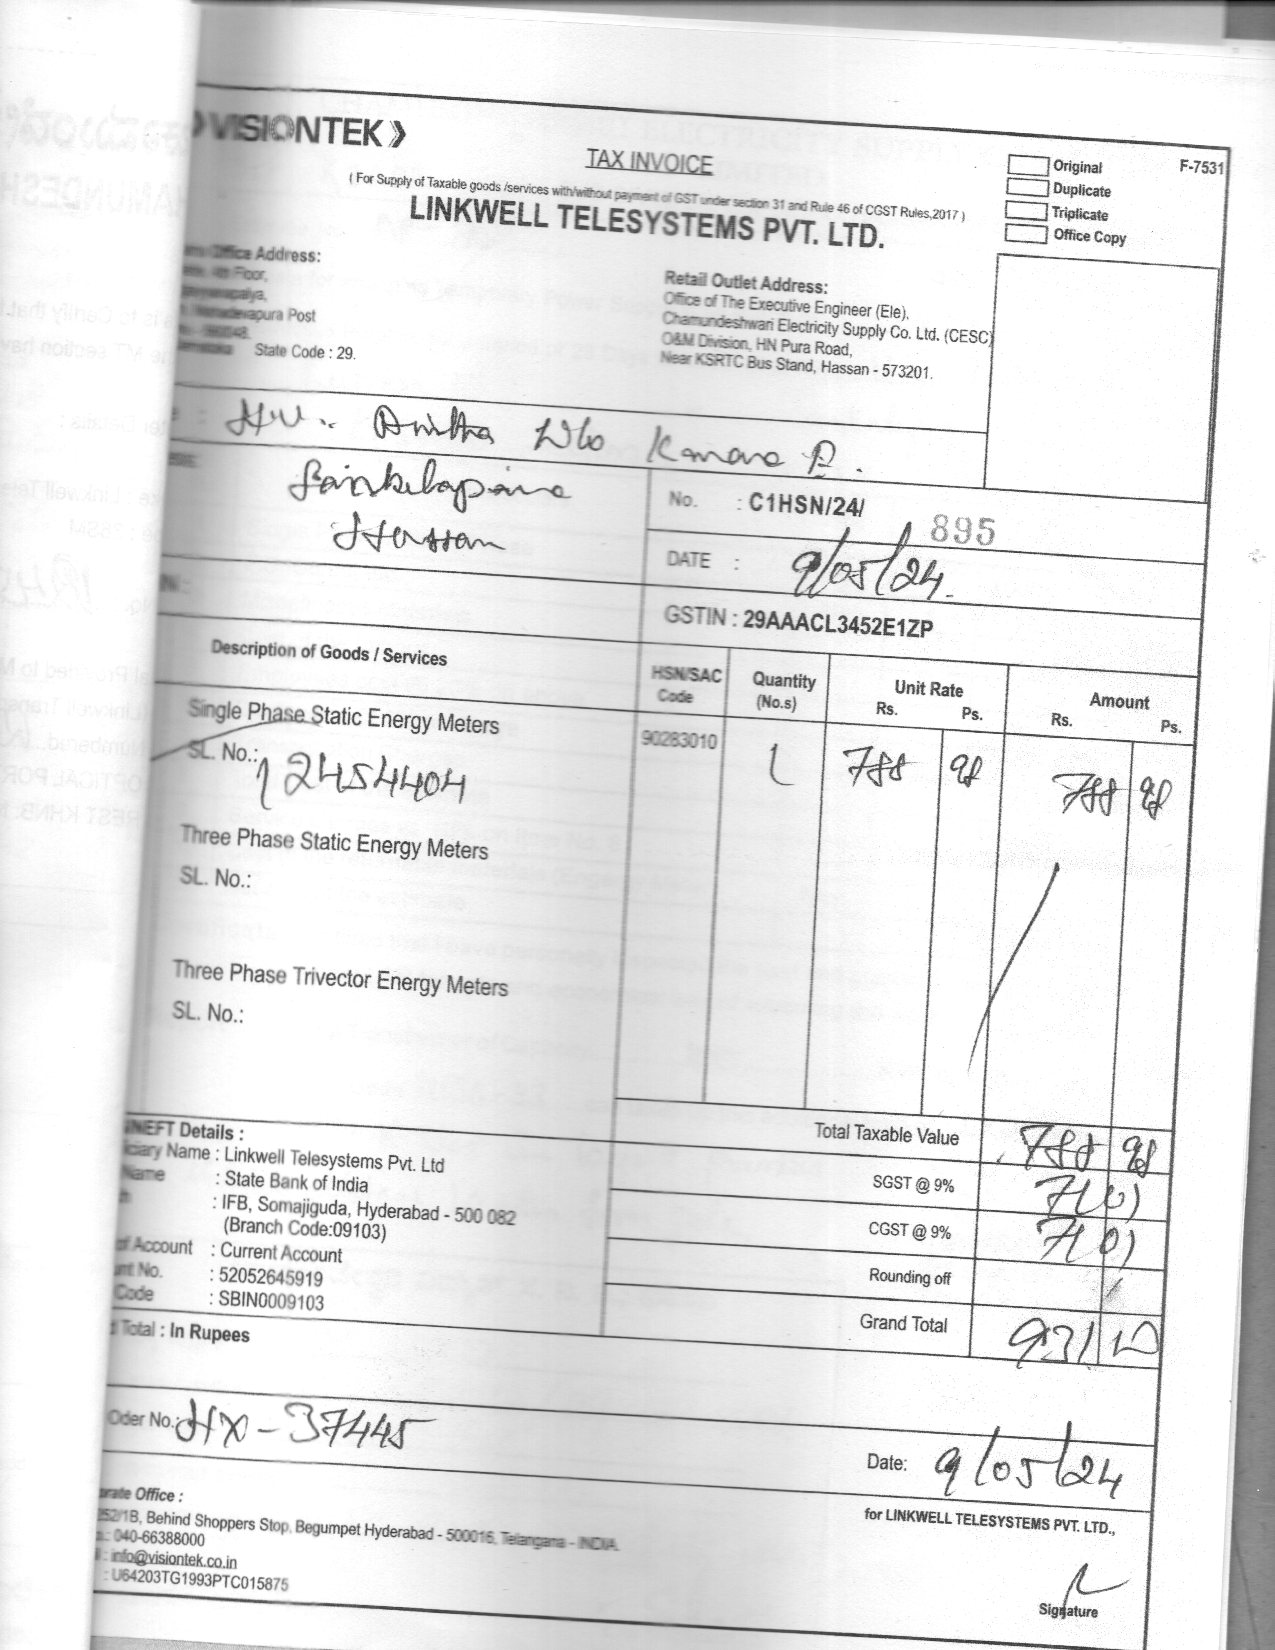 VISIONTEK
TAX INVOICE
( For Supply of Taxable goods /services with/without payment of GST under section 31 and Rule 46 of CGST Rules,2017 )
LINKWELL TELESYSTEMS PVT. LTD.
Original
F-7531
Duplicate
Triplicate
Office Copy
Office Address:
Floor,
Post
State Code : 29.
Retail Outlet Address:
Office of The Executive Engineer (Ele),
Chamundeshwari Electricity Supply Co. Ltd. (CESC)
O&M Division, HN Pura Road,
Near KSRTC Bus Stand, Hassan - 573201.
: Anitha W/o
Hassan
No. : C1HSN/24/ 895
DATE : 9/05/24.
GSTIN : 29AAACL3452E1ZP
Description of Goods / Services
HSN/SAC Code
Quantity (No.s)
Unit Rate
Rs. Ps.
Amount
Rs. Ps.
Single Phase Static Energy Meters
90283010 1 788 98 788 98
SL. No.: 12454404
Three Phase Static Energy Meters
SL. No.:
Three Phase Trivector Energy Meters
SL. No.:
Total Taxable Value 788 98
SGST @ 9% 71 01
CGST @ 9% 71 01
Rounding off
Grand Total 931 00
NEFT Details :
Name : Linkwell Telesystems Pvt. Ltd
Name : State Bank of India
: IFB, Somajiguda, Hyderabad - 500 082
(Branch Code:09103)
of Account : Current Account
No. : 52052645919
Code : SBIN0009103
Total : In Rupees
Oder No.: HX - 37445
Date: 9/05/24
Office :
Behind Shoppers Stop, Begumpet Hyderabad - 500016, Telangana - INDIA.
040-66388000
: info@visiontek.co.in
: U64203TG1993PTC015875
for LINKWELL TELESYSTEMS PVT. LTD.,
Signature